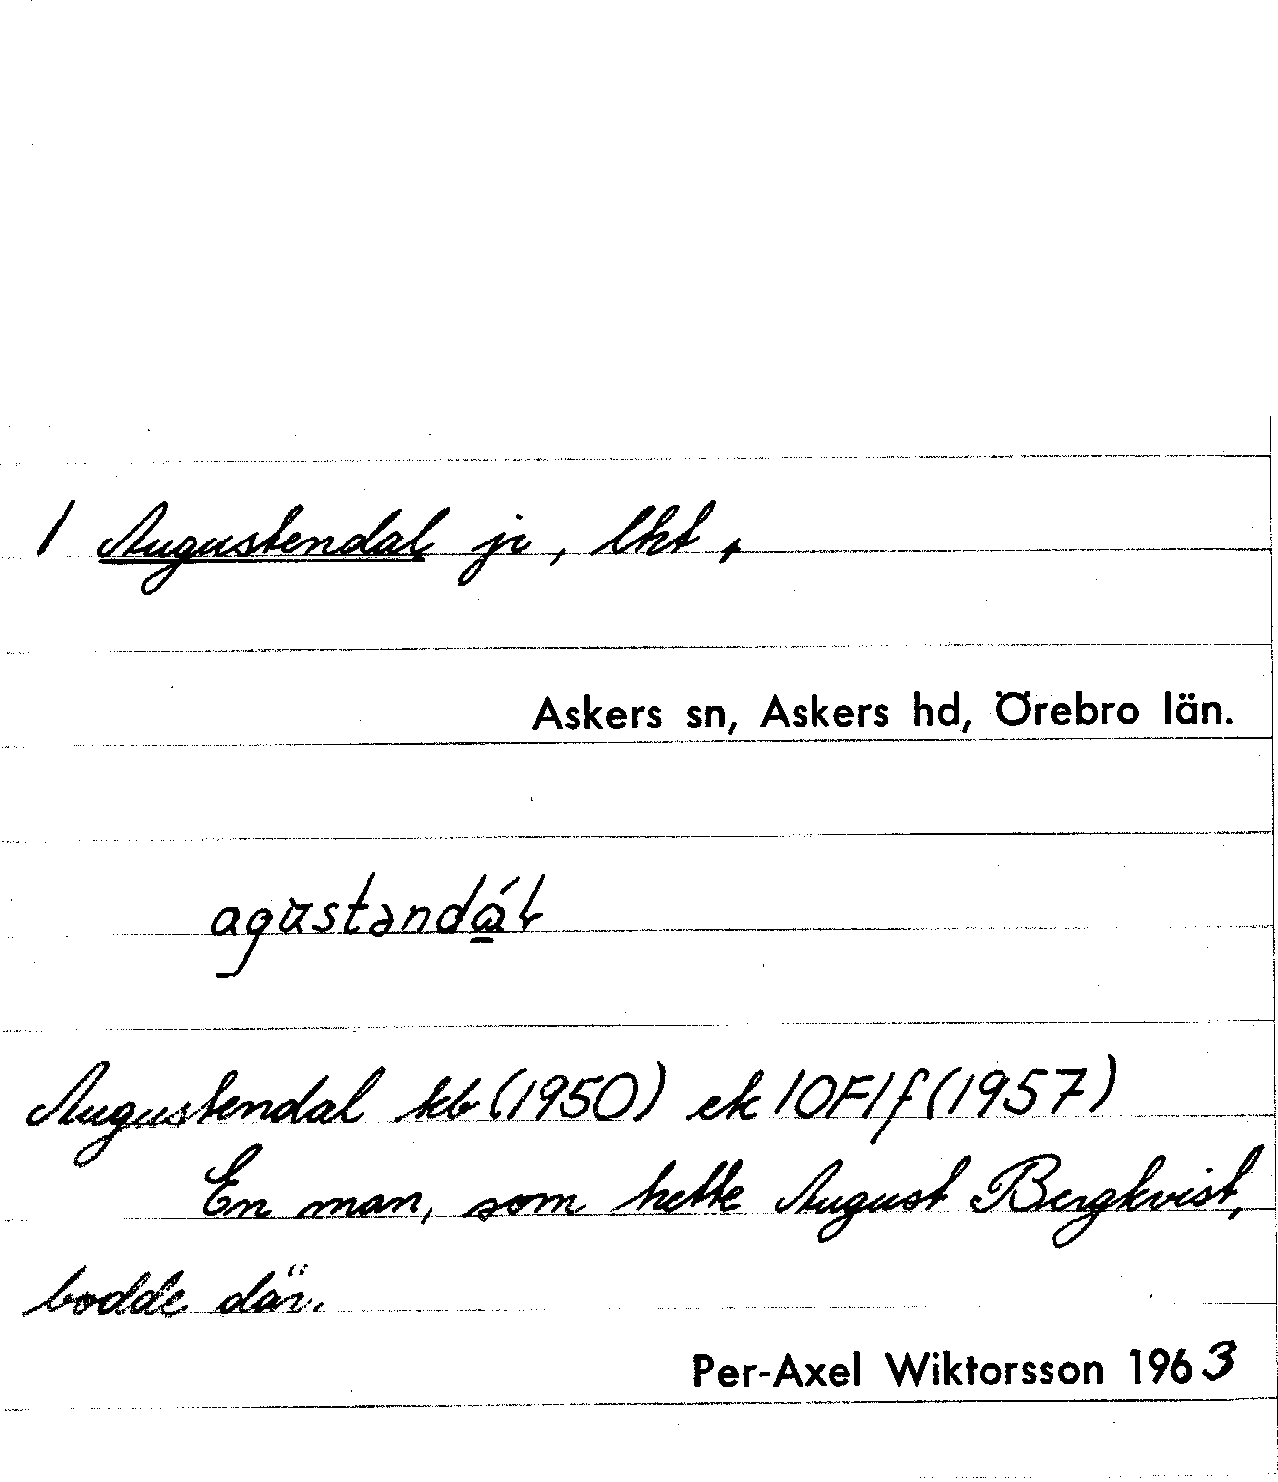 1 Augustendal ji, lkt,
Askers sn, Askers hd, Örebro län.
Augustendal kb (1950) ek 10F1f (1957)
En man, som hette August Bergkvist,
bodde där.
Per-Axel Wiktorsson 1963